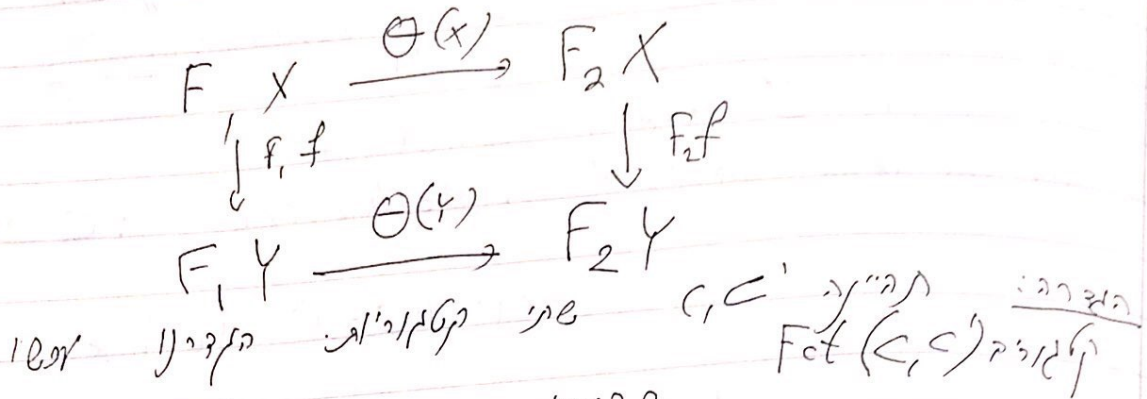 F X —θ(x)→ F₂X
↓ F₁f ↓ F₂f
F₁Y —θ(Y)→ F₂Y
הגדרה: תהיינה C, C' שתי קטגוריות. הגדרנו עכשיו
קטגוריה Fct(C, C')